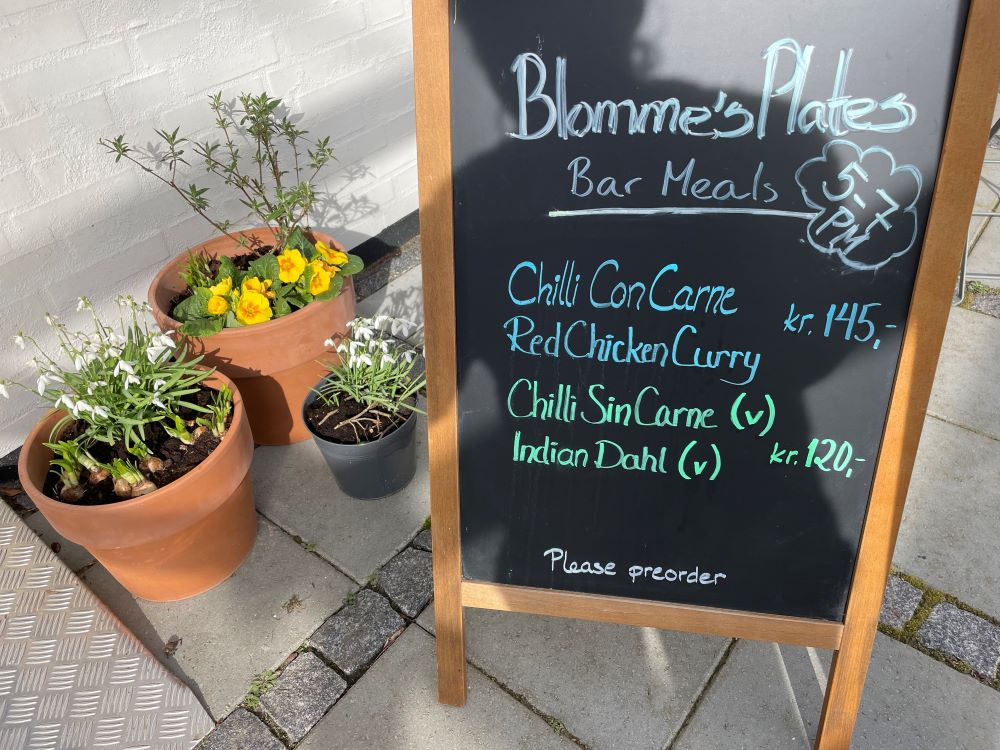 Blomme's Plates
Bar Meals
5-7
PM
Chilli Con Carne
kr. 145,-
Red Chicken Curry
Chilli Sin Carne (v)
Indian Dahl (v) kr. 120,-
Please preorder